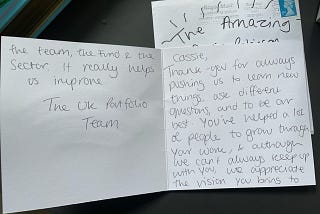 The Amazing
Cassie,
Thank-you for always
pushing us to learn new
things, ask different
questions, and to be our
best. You've helped a lot
of people to grow through
your work, & although
we can't always keep up
with you, we appreciate
the vision you bring to
the team, the Fund & the
Sector. It really helps
us improve.
The UK Portfolio
Team